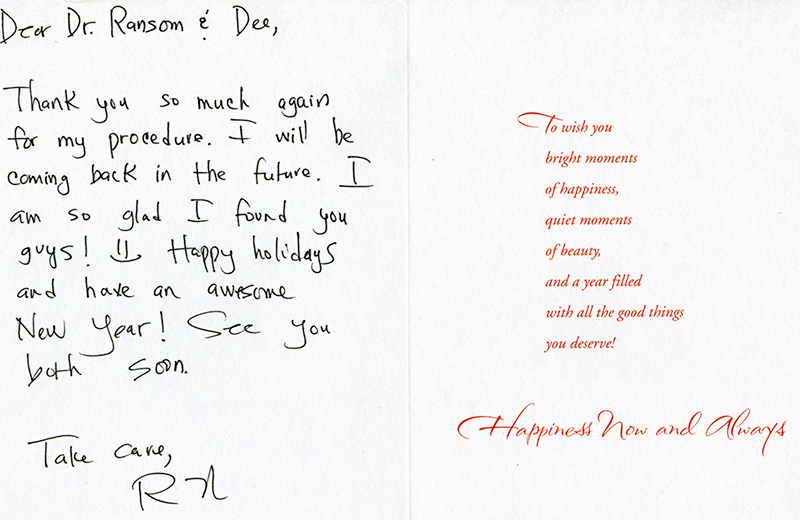 Dear Dr. Ransom & Dee,
Thank you so much again
for my procedure. I will be
coming back in the future. I
am so glad I found you
guys! Happy holidays
and have an awesome
New Year! See you
both soon.
Take care,
To wish you
bright moments
of happiness,
quiet moments
of beauty,
and a year filled
with all the good things
you deserve!
Happiness Now and Always